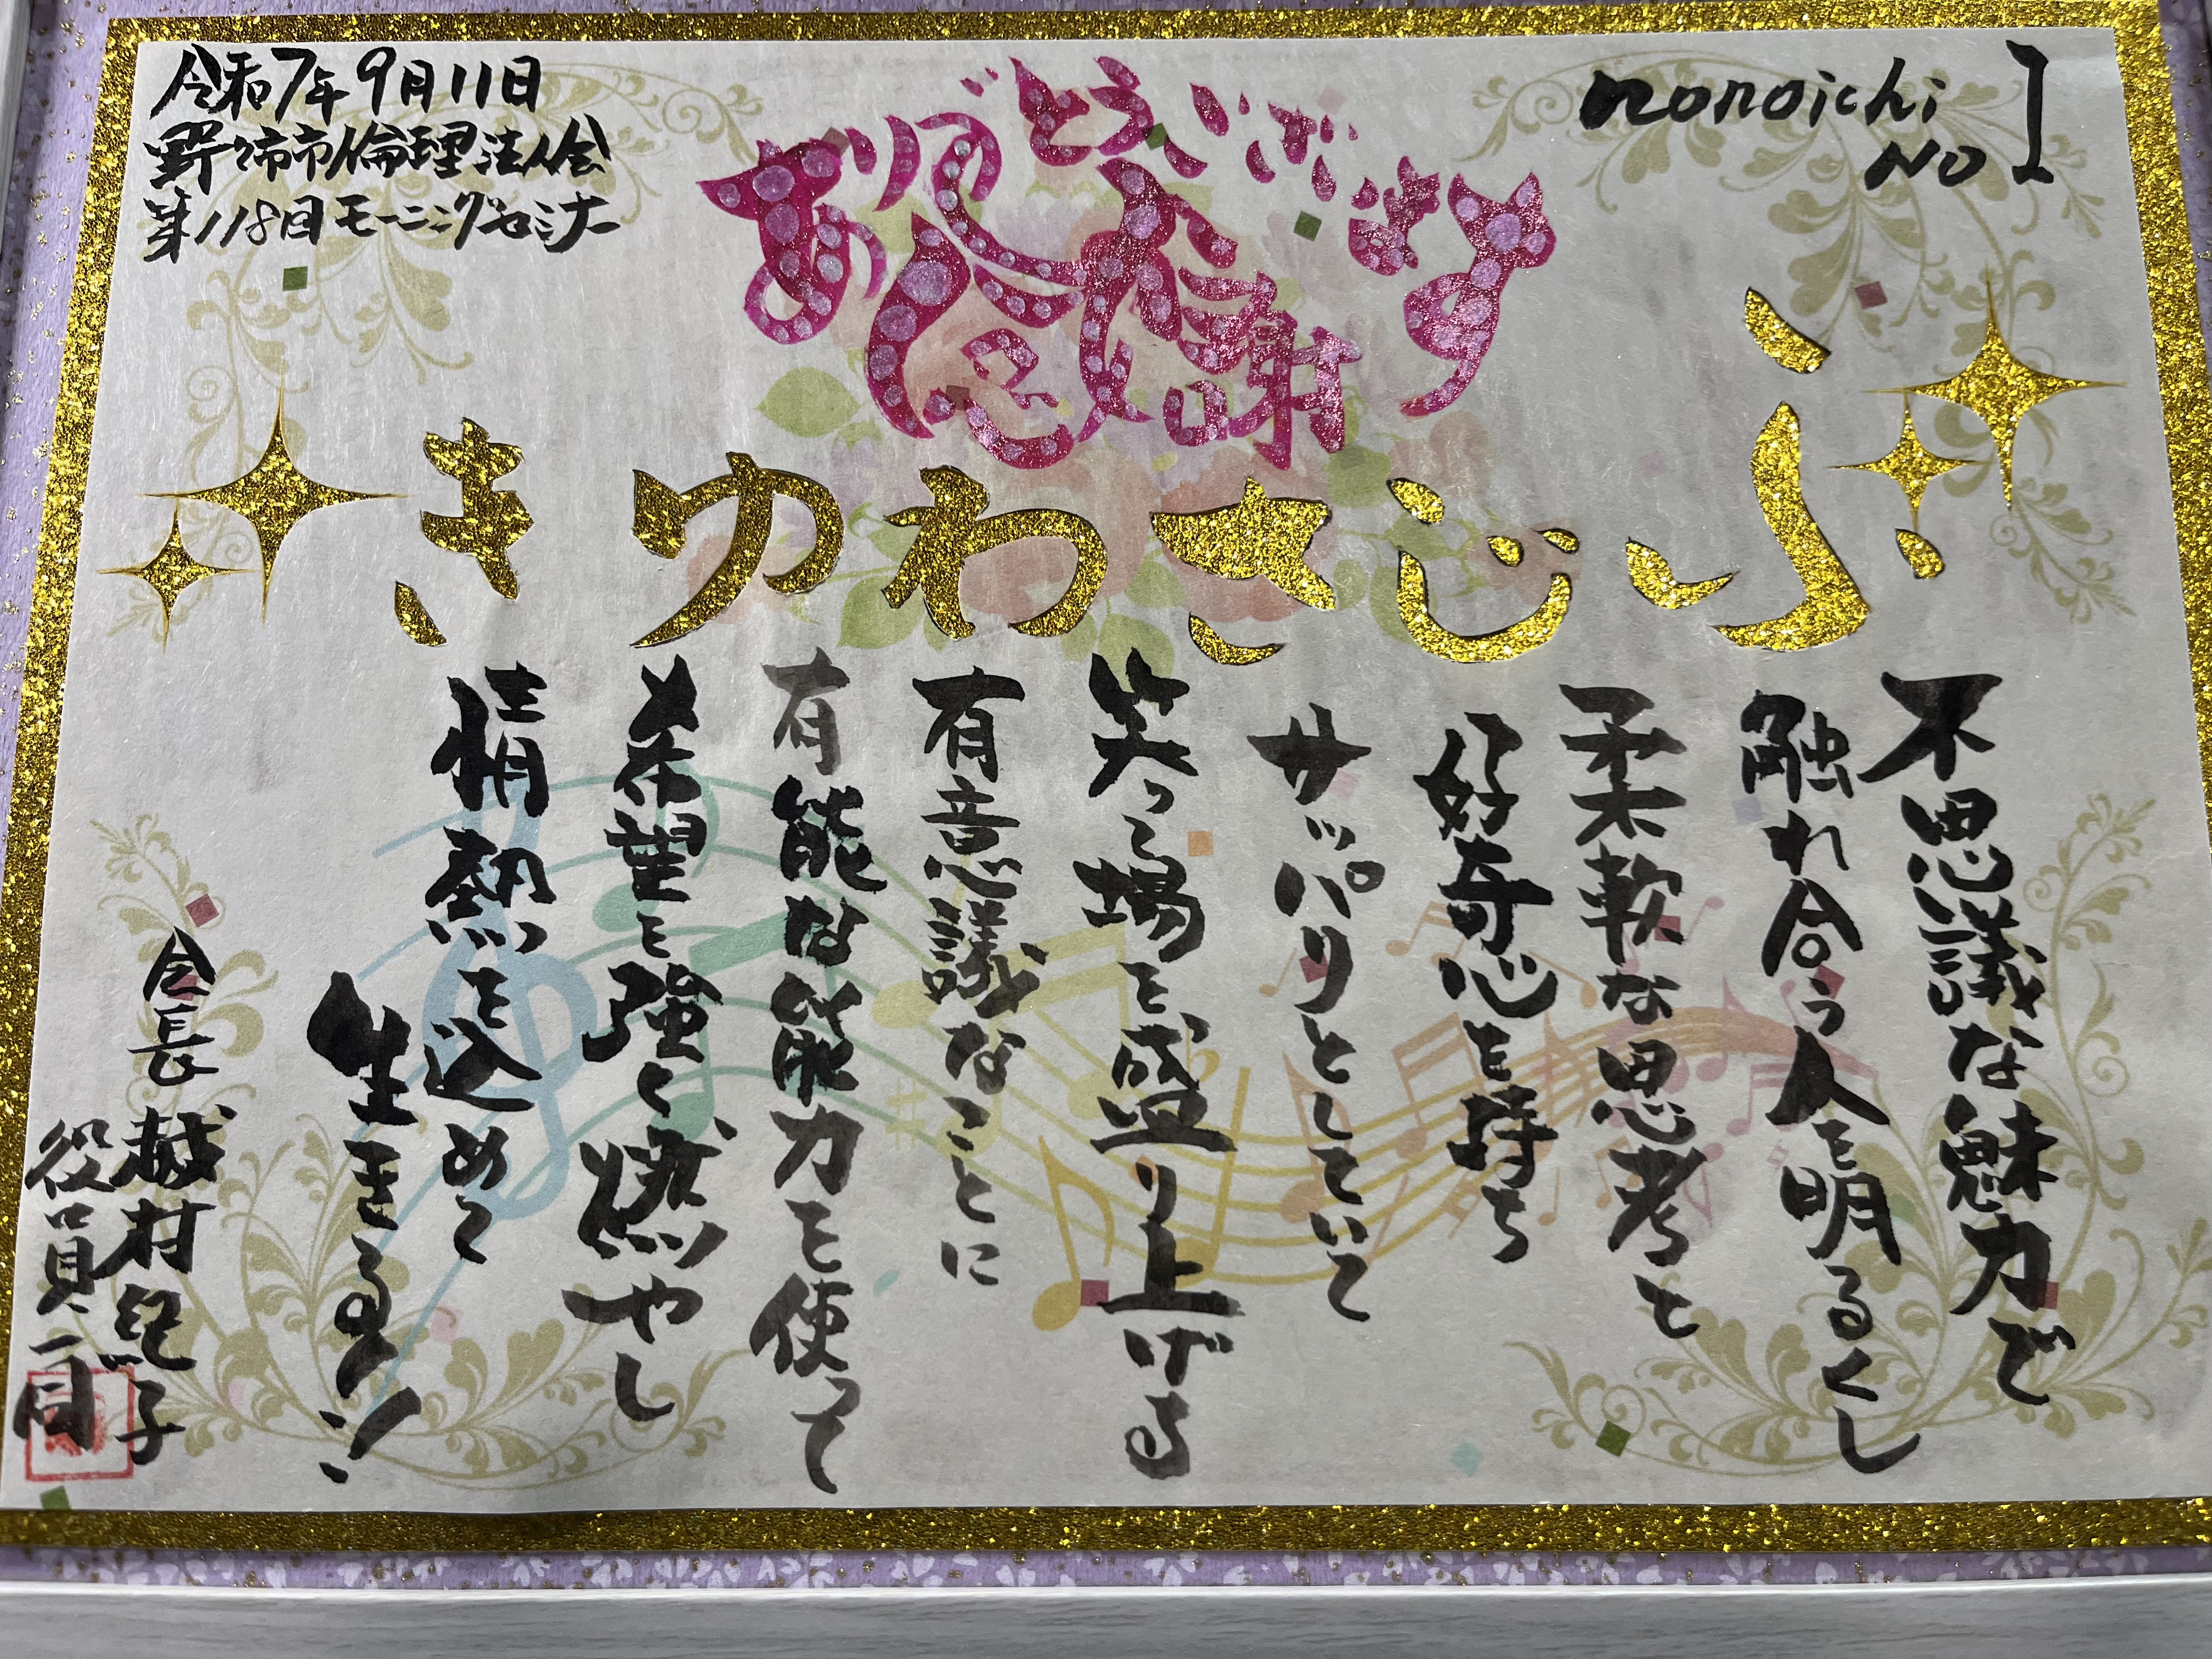 令和7年9月11日
野々市市倫理法人会
第118回モーニングセミナー
ありがとうございます
感謝
nonoichi
NO 1
ふじさわゆき
不思議な魅力で
触れ合う人を明るくし
柔軟な思考と
好奇心を持ち
サッパリとしていて
笑って場を盛り上げる
有意義なことに
有能な能力を使って
希望を強く燃やし
情熱を込めて
生きる!
会長 越村紀子
役員一同